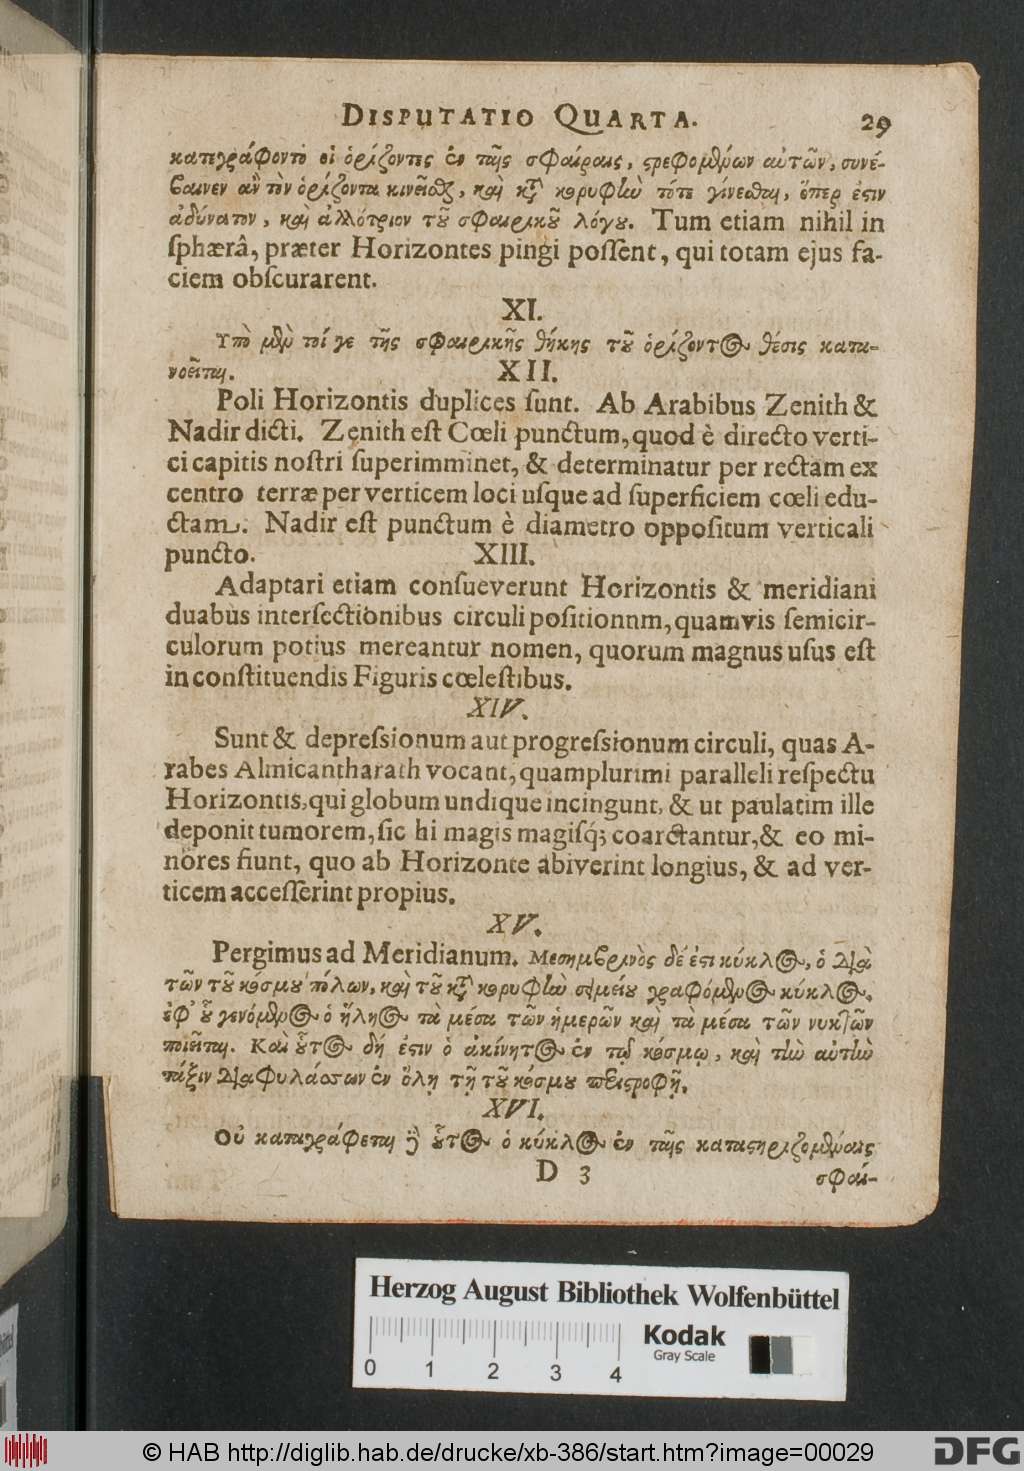 DISPUTATIO QUARTA. 29
κατεγράφοντο οἱ ὁρίζοντες ἐν ταῖς σφαίραις, στρεφομένων αὐτῶν, συνέ-
βαινεν ἂν τὸν ὁρίζοντα κινεῖσθαι, καὶ κατὰ κορυφὴν τότε γίνεσθαι, ὅπερ ἐστὶν
ἀδύνατον, καὶ ἀλλότριον τοῦ σφαιρικοῦ λόγου. Tum etiam nihil in
ſphærâ, præter Horizontes pingi poſſent, qui totam ejus fa-
ciem obſcurarent.
XI.
Ὑπὸ μὲν τοί γε τῆς σφαιρικῆς θήκης τοῦ ὁρίζοντος θέσις κατα-
νοεῖται. XII.
Poli Horizontis duplices ſunt. Ab Arabibus Zenith &
Nadir dicti. Zenith eſt Cœli punctum, quod è directo verti-
ci capitis noſtri ſuperimminet, & determinatur per rectam ex
centro terræ per verticem loci uſque ad ſuperficiem cœli edu-
ctam. Nadir eſt punctum è diametro oppoſitum verticali
puncto. XIII.
Adaptari etiam conſueverunt Horizontis & meridiani
duabus interſectionibus circuli poſitionnm, quamvis ſemicir-
culorum potius mereantur nomen, quorum magnus uſus eſt
in conſtituendis Figuris cœleſtibus.
XIV.
Sunt & depreſsionum aut progreſsionum circuli, quas A-
rabes Almicantharath vocant, quamplurimi paralleli reſpectu
Horizontis, qui globum undique incingunt, & ut paulatim ille
deponit tumorem, ſic hi magis magiſq́; coarctantur, & eo mi-
nores fiunt, quo ab Horizonte abiverint longius, & ad ver-
ticem acceſſerint propius.
XV.
Pergimus ad Meridianum. Μεσημβρινὸς δέ ἐστι κύκλος, ὁ διὰ
τῶν τοῦ κόσμου πόλων, καὶ τοῦ κατὰ κορυφὴν σημείου γραφόμενος κύκλος,
ἐφ’ οὗ γενόμενος ὁ ἥλιος τὰ μέσα τῶν ἡμερῶν καὶ τὰ μέσα τῶν νυκτῶν
ποιεῖται. Καὶ οὗτος δή ἐστιν ὁ ἀκίνητος ἐν τῷ κόσμῳ, καὶ τὴν αὐτὴν
τάξιν διαφυλάσσων ἐν ὅλῃ τῇ τοῦ κόσμου περιστροφῇ.
XVI.
Οὐ καταγράφεται δὲ οὗτος ὁ κύκλος ἐν ταῖς καταστηριζομέναις
D 3 σφαί-
Herzog August Bibliothek Wolfenbüttel
Kodak
Gray Scale
0 1 2 3 4
© HAB http://diglib.hab.de/drucke/xb-386/start.htm?image=00029
DFG